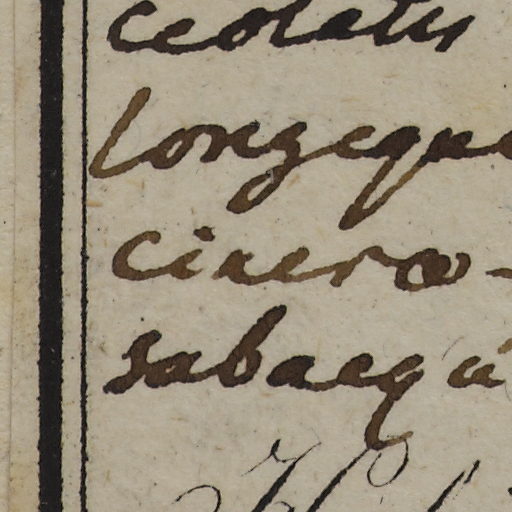 ceolatis
longeque
cinero-
sabaequ